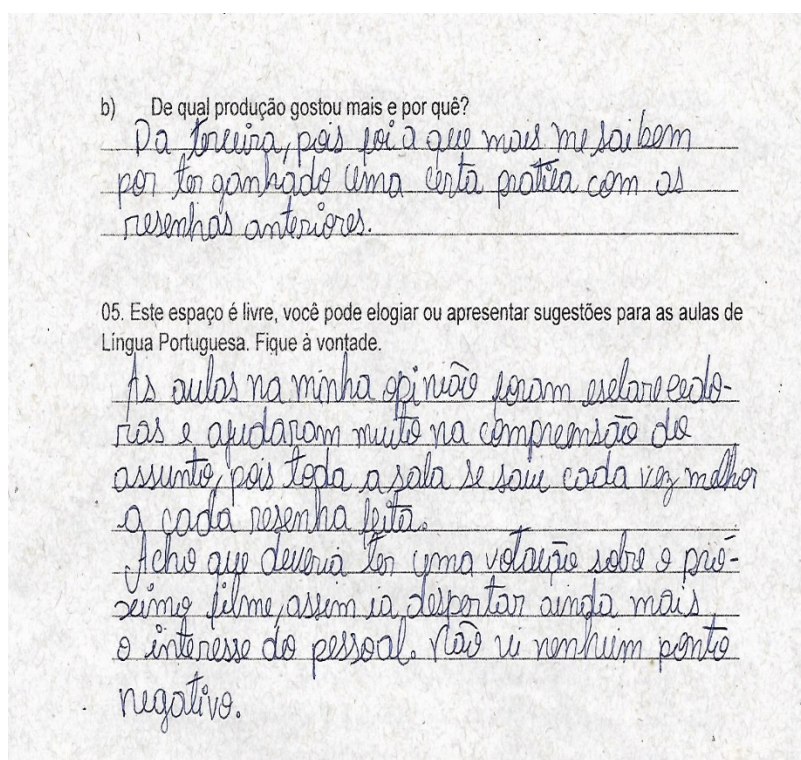 b) De qual produção gostou mais e por quê?
Da terceira, pois foi a que mais me sai bem
por ter ganhado uma certa pratica com as
resenhas anteriores.
05. Este espaço é livre, você pode elogiar ou apresentar sugestões para as aulas de
Língua Portuguesa. Fique à vontade.
As aulas na minha opinião foram esclarecedo-
ras e ajudaram muito na compreensão do
assunto, pois toda a sala se saiu cada vez melhor
a cada resenha feita.
Acho que deveria ter uma votação sobre o pró-
ximo filme, assim ia despertar ainda mais
o interesse do pessoal. Não vi nenhum ponto
negativo.